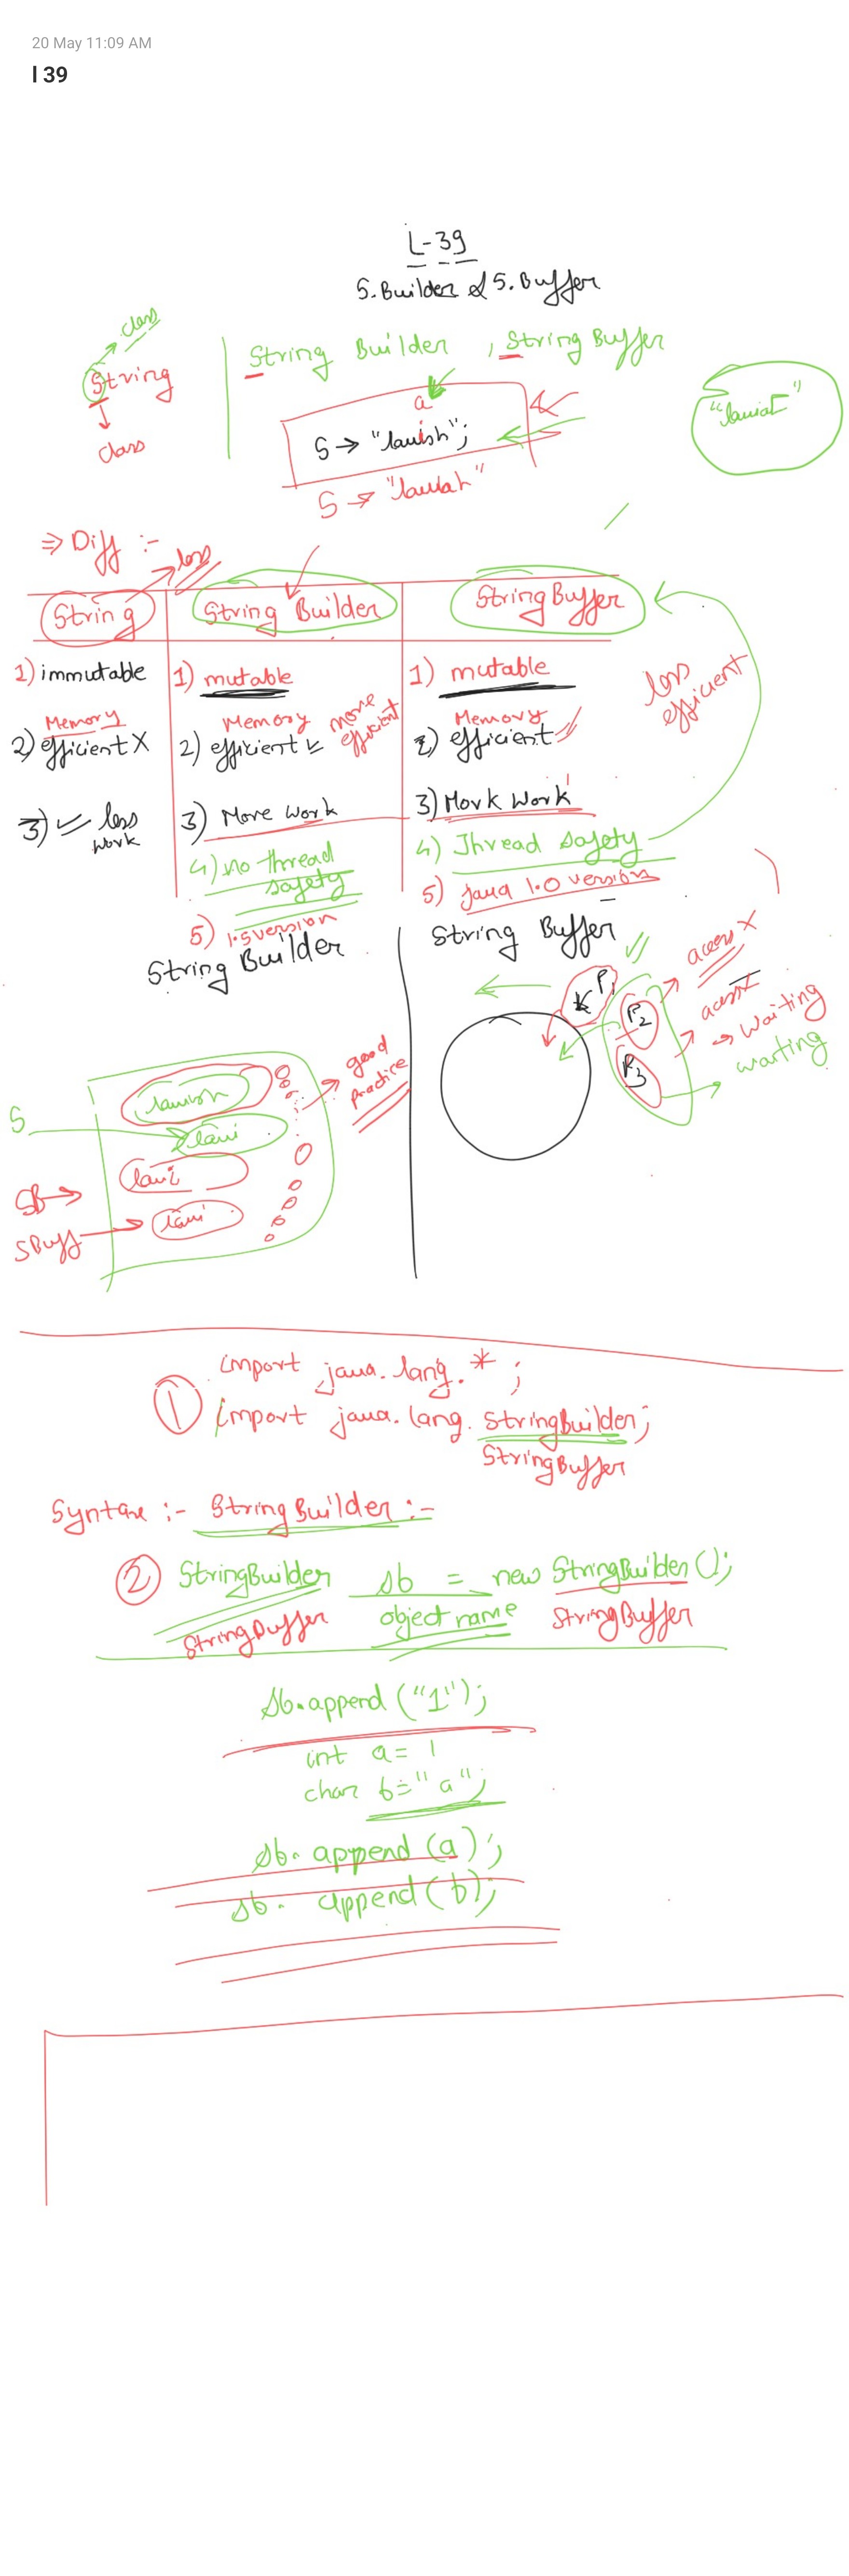 20 May 11:09 AM
l 39
L-39
S.Builder & S.Buffer
class
String
class
String Builder , String Buffer
a
S → "lavish";
S → "lavish"
⇒ Diff :-
less
String
String Builder
String Buffer
1) immutable
1) mutable
1) mutable
less efficient
Memory
2) efficient X
Memory
2) efficient ✓
more efficient
Memory
2) efficient
3) ✓ less work
3) More work
3) Mork Work
4) no thread safety
4) Thread safety
5) 1.5 version
5) Java 1.0 version
String Builder
String Buffer
P1
P2
P3
access X
access X
→ waiting
waiting
good practice
S
lavish
lavi
SB →
lavi
SBuff
lavi
import java.lang.* ;
① import java.lang.StringBuilder;
StringBuffer
Syntax :- StringBuilder :-
② StringBuilder sb = new StringBuilder();
StringBuffer object name StringBuffer
sb.append("1");
int a = 1
char b = "a";
sb.append(a);
sb.append(b);